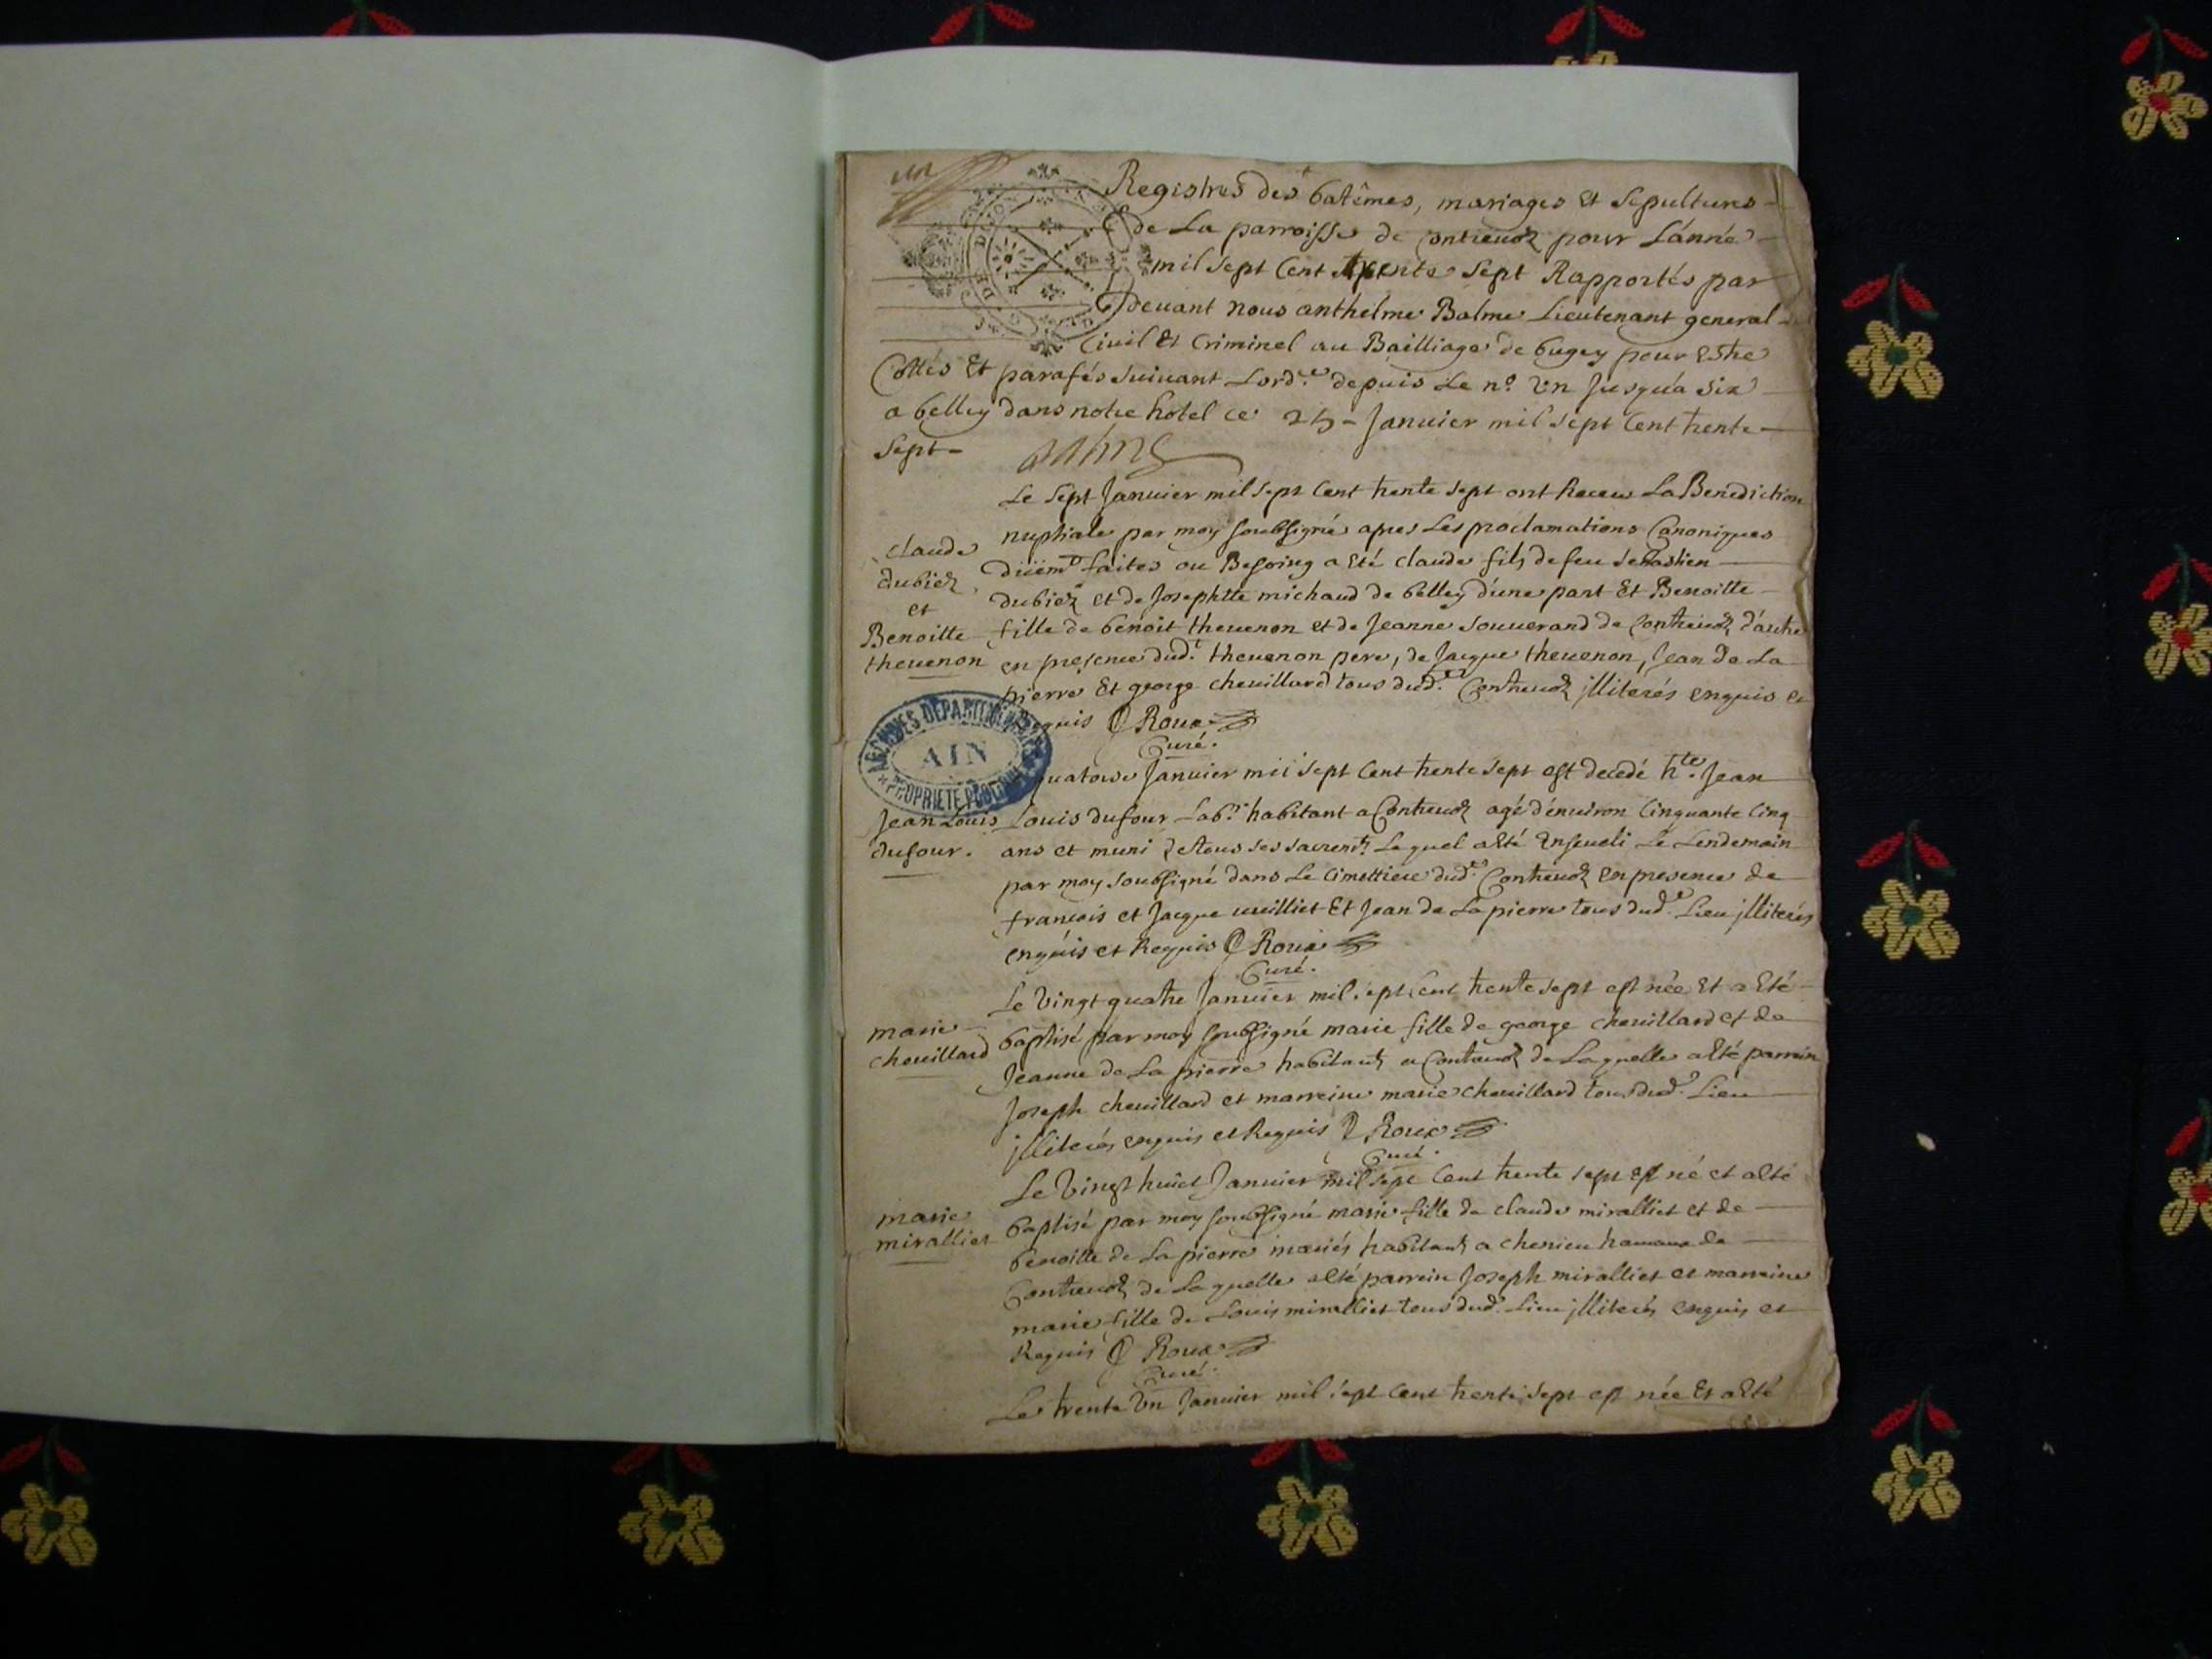 un
Registres des batêmes, mariages et sepultures
de la parroisse de Contrevoz pour L'année
mil sept cent trente sept Rapportés par
devant nous anthelme Balme Lieutenant general
Civil et Criminel au Bailliage de bugey pour estre
Cottés et parafés suivant Lord.ce depuis Le n.o un Jusqu'a six
a belley dans notre hotel ce 25 Janvier mil sept cent trente
sept balme
Le sept Janvier mil sept cent trente sept ont Receu La Benediction
nuptiale par moy soubsigné apres Les proclamations Canoniques
duëm.t faites ou Besoing a eté claude fils de feu sebastien
dubiez et de Josephtte michaud de belley d'une part et Benoitte
fille de benoit thevenon et de Jeanne souverand de Contrevoz d'autre
en presence dud.t thevenon pere, de Jacque thevenon, Jean de La
pierre et george chevillard tous dud.t Contrevoz jlliterés enquis et
Requis Roux
Curé.
claude
dubiez
et
Benoitte
thevenon
ARCHIVES DEPARTEMENTALES
AIN
PROPRIETE PUBLIQUE
quatorse Janvier mil sept cent trente sept est decedé h.te Jean
Louis dufour Lab.r habitant a Contrevoz agé d'environ cinquante cinq
ans et muni de tous ses sacrem.ts Lequel a eté Enseveli Le Lendemain
par moy soubsigné dans Le cimettiere dud.t Contrevoz en presence de
francois et Jacque vuilliet et Jean de La pierre tous dud.t Lieu jlliterés
enquis et Requis Roux
Curé.
Jean Louis
dufour.
Le vingt quatre Janvier mil sept cent trente sept est née et a eté
baptisé par moy soubsigné marie fille de george chevillard et de
Jeanne de La pierre habitants a Contrevoz de Laquelle a eté parrein
Joseph chevillard et marreine marie chevillard tous dud.t Lieu
jlliterés enquis et Requis Roux
Curé.
marie
chevillard
Le vingt huict Janvier mil sept cent trente sept est né et a eté
baptisé par moy soubsigné marie fille de claude miralliet et de
benoitte de La pierre mariés habitants a chenieu hameau de
Contrevoz de Laquelle a eté parrein Joseph miralliet et marreine
marie fille de Louis miralliet tous dud.t Lieu jlliterés enquis et
Requis Roux
Curé.
marie
miralliet
Le trente un Janvier mil sept cent trente sept est née et a eté